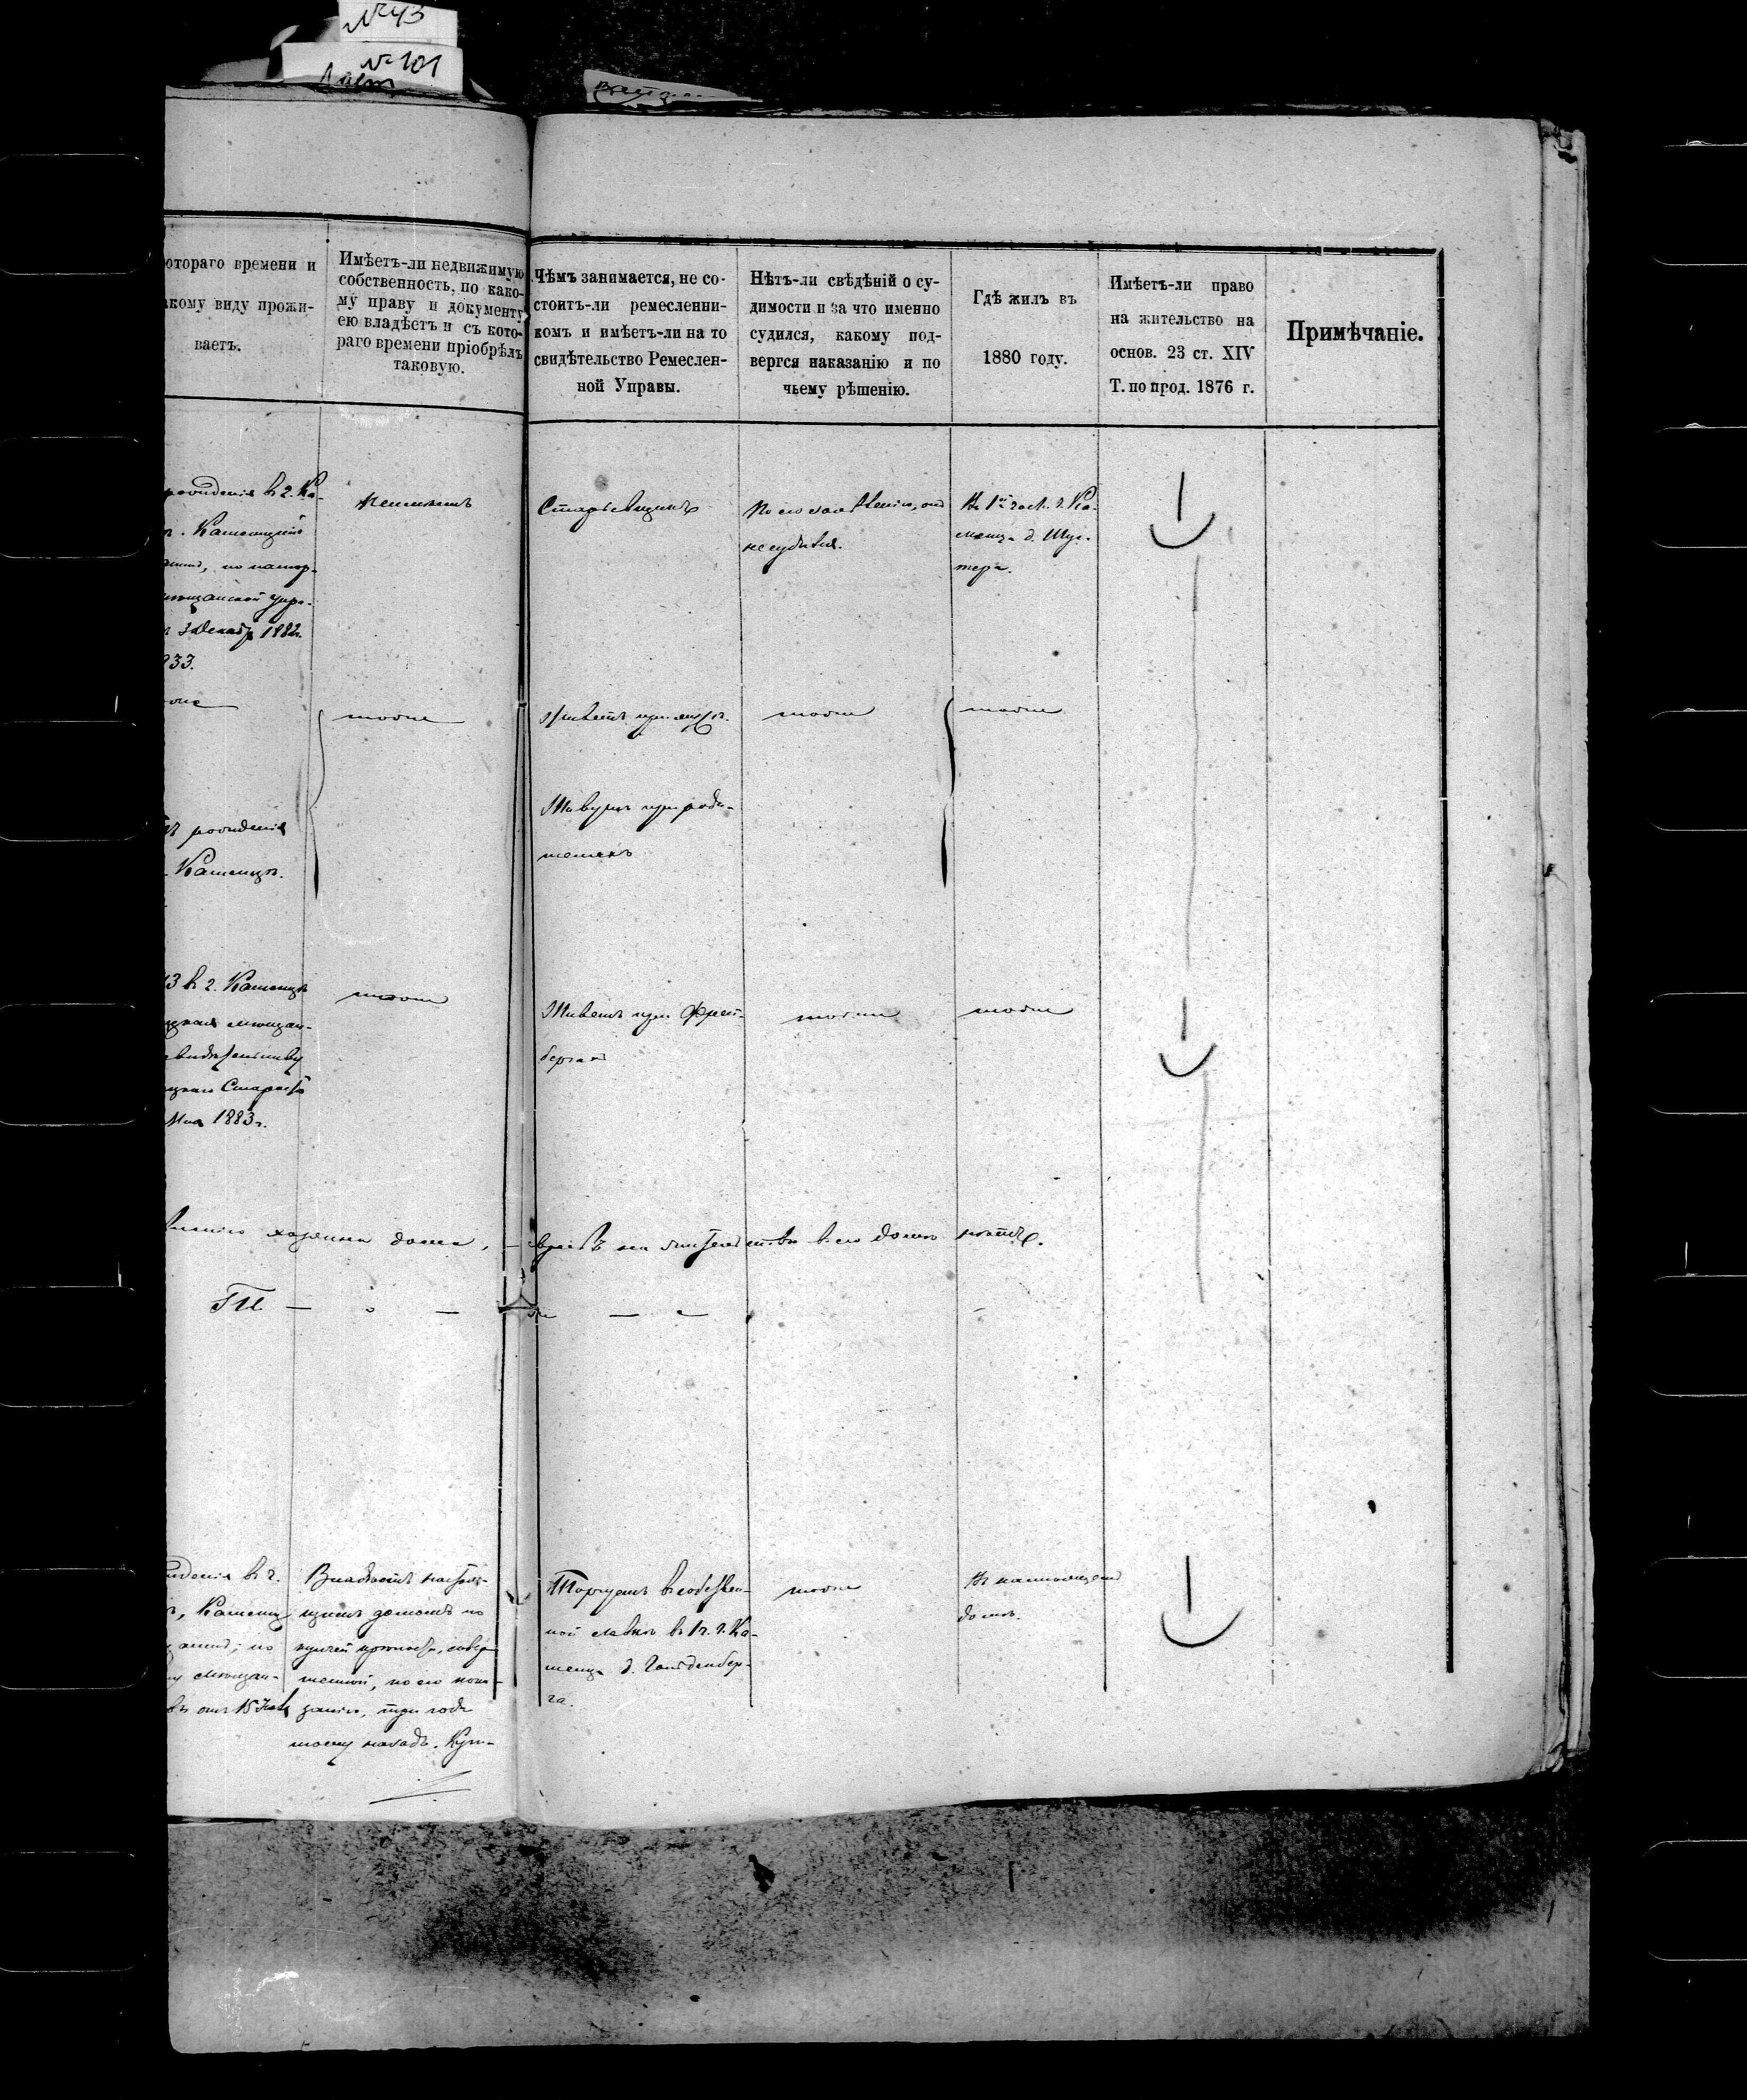 № 43
№ 101
котораго времени и
какому виду прожи-
ваетъ.
Имѣетъ-ли недвижимую
собственность, по како-
му праву и документу
ею владѣетъ и съ кото-
раго времени пріобрѣлъ
таковую.
Чѣмъ занимается, не со-
стоитъ-ли ремесленни-
комъ и имѣетъ-ли на то
свидѣтельство Ремеслен-
ной Управы.
Нѣтъ-ли свѣдѣній о су-
димости и за что именно
судился, какому под-
вергся наказанію и по
чьему рѣшенію.
Гдѣ жилъ въ
1880 году.
Имѣетъ-ли право
на жительство на
основ. 23 ст. XIV
Т. по прод. 1876 г.
Примѣчаніе.
рожденія в г. Ка-
Каменецкій
3 Декабр 1882г.
933.
Неимѣетъ
Старьевщикъ
По его заявленію, онъ
не судился.
Въ 1й част. г. Ка-
менца д. Шус-
тера.
тоже
Живетъ при мужѣ.
тоже
тоже
рожденія
Каменцѣ.
Живутъ при роди-
теляхъ
в г. Каменцѣ
мѣщан-
свидѣтельству
Старосты
Мая 1883г.
тоже
Живетъ при Фрей-
бергахъ
тоже
тоже
хозяина дома, евреевъ на жительствѣ в его домѣ нѣтъ.
То же
рожденія в г.
Каменец
мѣщан-
отъ 15
Владѣетъ настоя-
щимъ домомъ по
купчей крѣпости, совер-
шенной, по его пока-
занію, три года
тому назадъ. Куп-
Торгуетъ в собствен-
ной лавкѣ в 1 ч. г. Ка-
менца д. Гольденбер-
га.
тоже
Въ настоящемъ
домѣ.